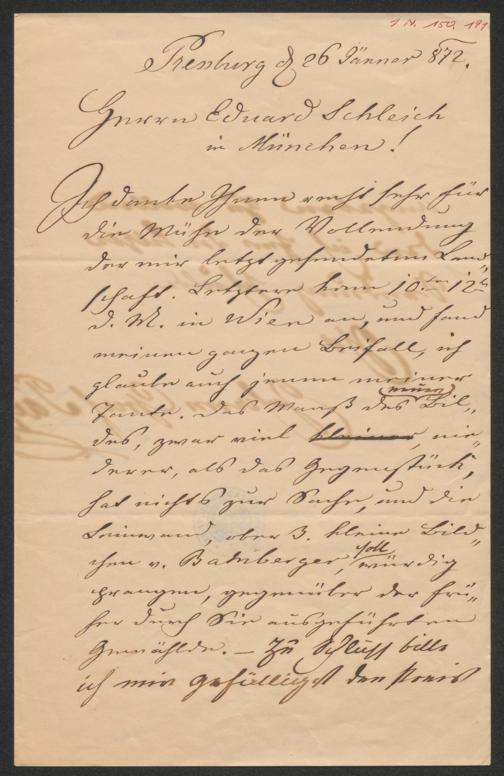 I N. 150.191
Presburg d 26 Jänner 872.
Herrn Eduard Schleich
in München!
Ich danke Ihnen recht sehr für
die Mühe der Vollendung
der mir letzt gesendeten Land„
schaft. Letztere kam 10 12
d. M. in Wien an, und fand
meinen ganzen Beifall, ich
glaube auch jenen meiner
neuen
Tante. Das Maaß des Bil„
des, zwar viel kleiner, nie„
derer, als das Gegenstück,
hat nichts zur Sache, und die
Leinwand, ober 3. kleine Bild„
soll
chen v. Bamberger, würdig
prangen, gegenüber der frü„
her durch Sie ausgeführten
Gemählde. – Zu Schluß bitte
ich mir gefälligst den Preis